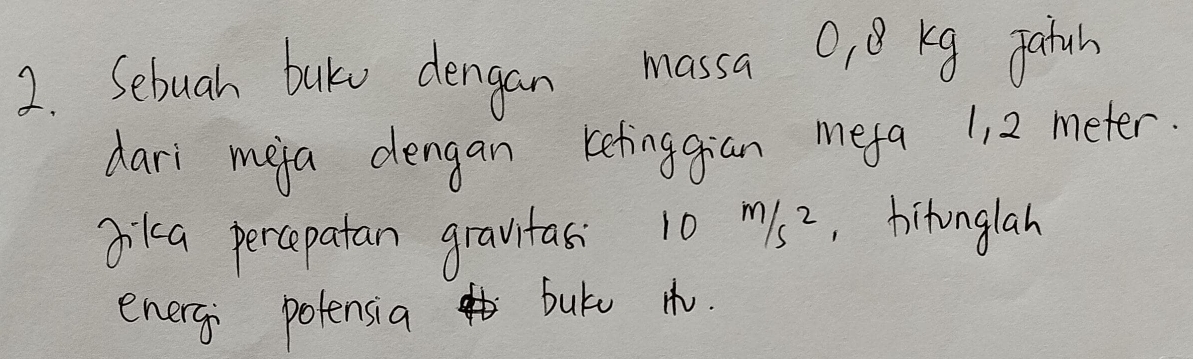 2. Sebuah buku dengan massa 0,8 kg jatuh
dari meja dengan ketinggian meja 1,2 meter.
Jika percepatan gravitasi 10 m/s², hitunglah
energi potensia buku itu.